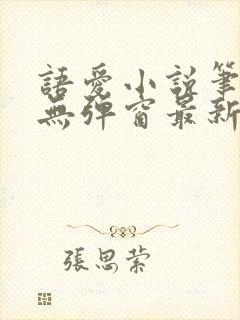 語愛小說筆
無彈窗最新
張思萦